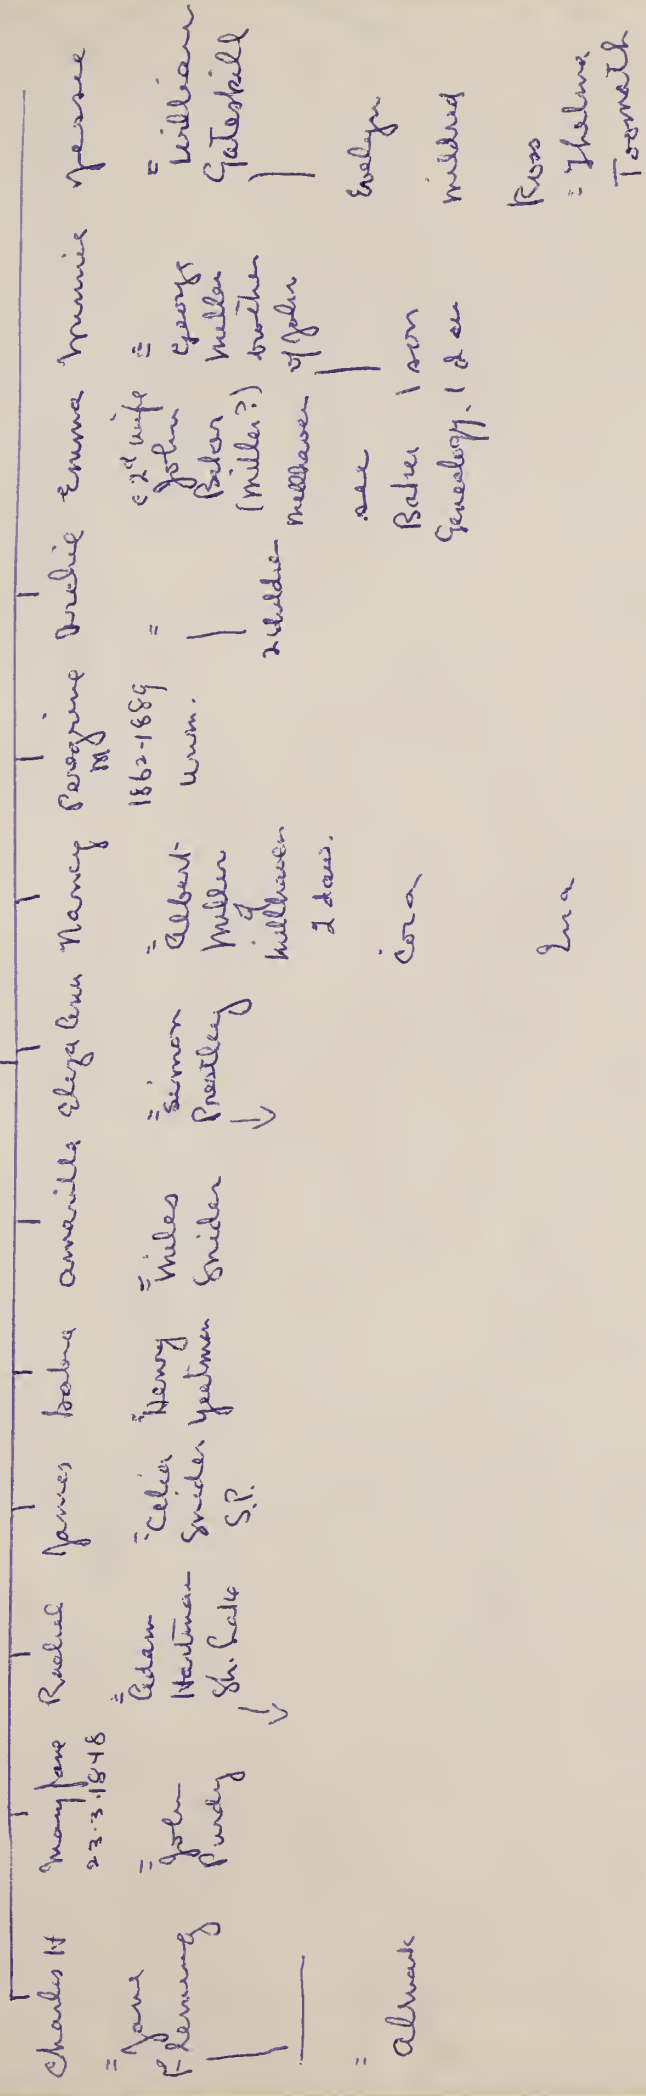 Charles H
= Jane
Fleming
=
Almark
Mary Jane
23.3.1848
= John
Purdy
Rachel
= Adam
Hartman
Sh. Lake
James
= Celia
Snider
S.P.
= Henry
Yeatman
Amarilla
= Miles
Snider
Eliza Ann
= Simon
Prestley
Nancy
= Albert
Miller
of
Millhaven
2 daus.
Cora
Ena
Peregrine
M
1862-1889
unm.
Archie
=
2 children
Emma
= 2nd wife
John
Baker
(Miller?)
Millhaven
see
Baker
Genealogy.
Minnie
=
George
Miller
brother
of John
1 son
1 dau
Jessie
= William
Gateskill
Evelyn
Mildred
Ross
= Thelma
Toomath